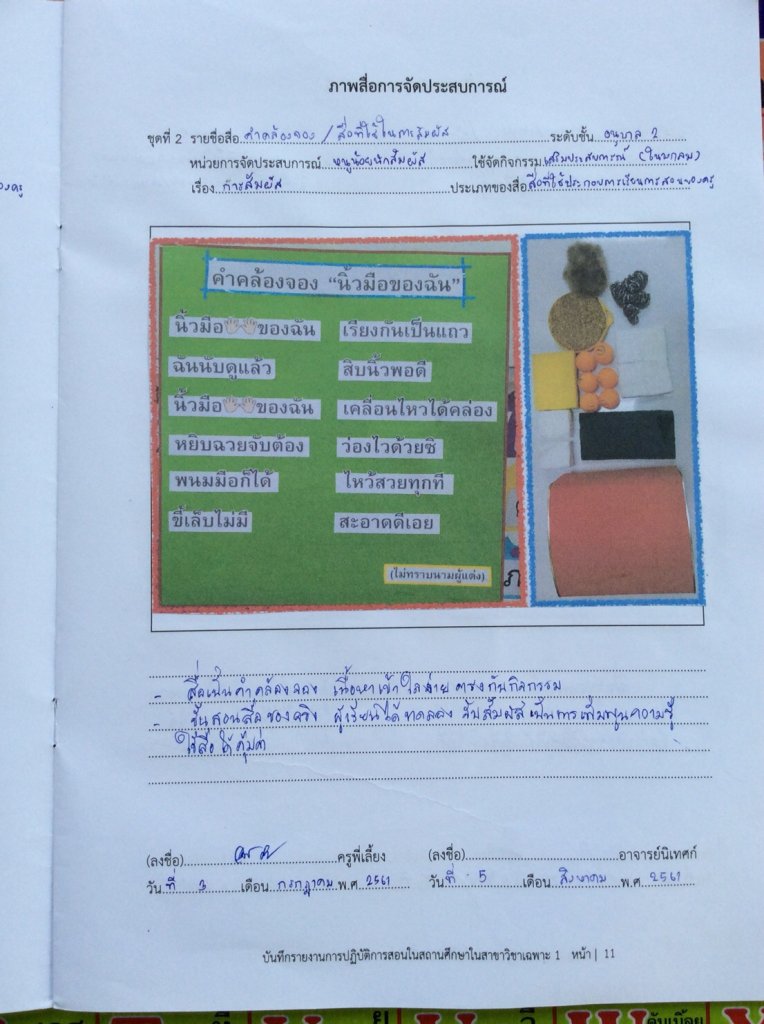 ภาพสื่อการจัดประสบการณ์
ชุดที่ 2 รายชื่อสื่อ คำคล้องจอง / สื่อที่ใช้ในการสัมผัส ระดับชั้น อนุบาล 2
หน่วยการจัดประสบการณ์ หนูน้อยนักสัมผัส ใช้จัดกิจกรรม เสริมประสบการณ์ (ในวงกลม)
เรื่อง การสัมผัส ประเภทของสื่อ สื่อที่ใช้ประกอบการเรียนการสอนของครู
คำคล้องจอง “นิ้วมือของฉัน”
นิ้วมือ ของฉัน เรียงกันเป็นแถว
ฉันนับดูแล้ว สิบนิ้วพอดี
นิ้วมือ ของฉัน เคลื่อนไหวได้คล่อง
หยิบฉวยจับต้อง ว่องไวด้วยซิ
พนมมือก็ได้ ไหว้สวยทุกที
ขี้เล็บไม่มี สะอาดดีเอย
(ไม่ทราบนามผู้แต่ง)
- สื่อเป็นคำคล้องจอง เนื้อหาเข้าใจง่าย ตรงกับกิจกรรม
- ขั้นสอนสื่อของจริง ผู้เรียนได้ทดลอง จับสัมผัส เป็นการเพิ่มพูนความรู้
ใช้สื่อได้คุ้มค่า
(ลงชื่อ) ครูพี่เลี้ยง (ลงชื่อ) อาจารย์นิเทศก์
วันที่ 3 เดือน กรกฎาคม พ.ศ. 2561 วันที่ 5 เดือน สิงหาคม พ.ศ. 2561
บันทึกรายงานการปฏิบัติการสอนในสถานศึกษาในสาขาวิชาเฉพาะ 1 หน้า | 11